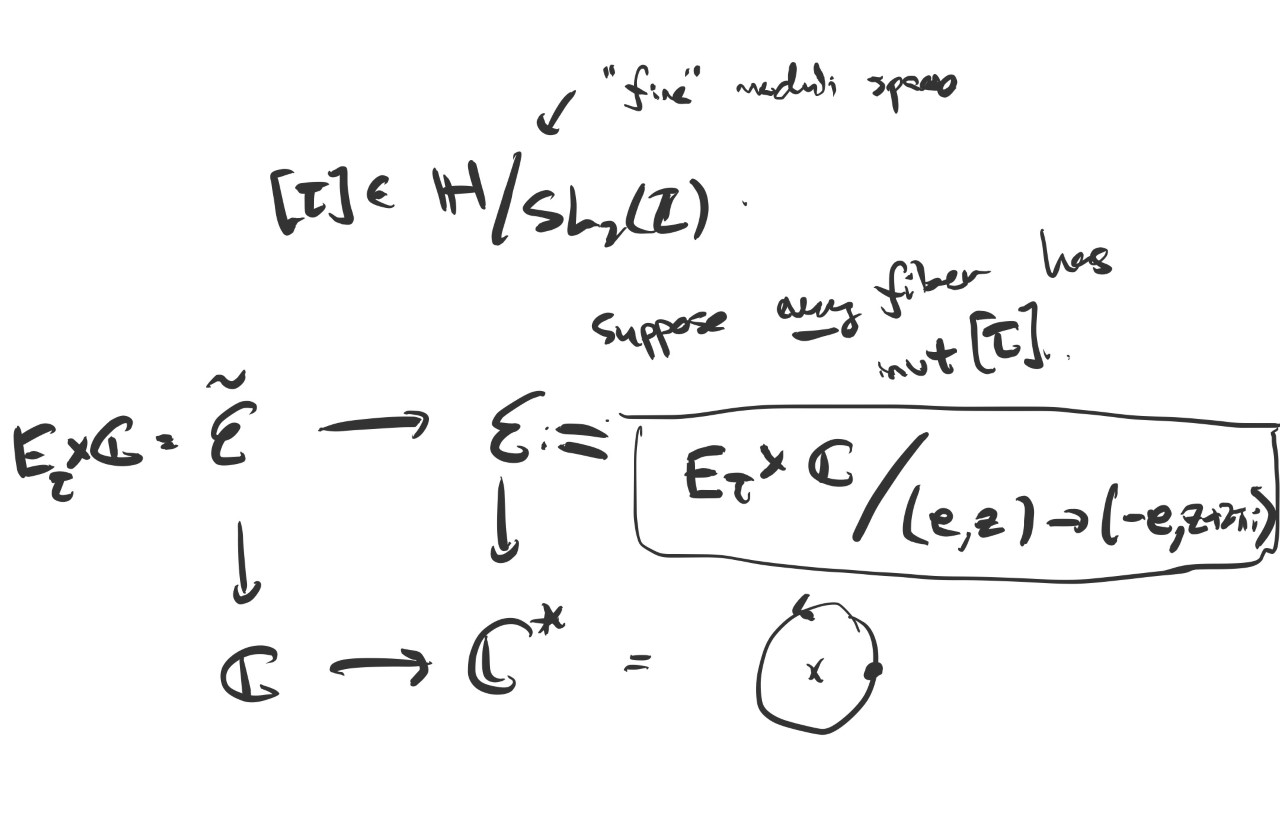 "fine" moduli space
[τ] ∈ ℍ/SL₂(ℤ)
suppose every fiber has
inv't [τ].
E_τ × ℂ = ℰ̃ → ℰ := E_τ × ℂ / (e,z) → (-e, z+2πi)
ℂ → ℂ* = x